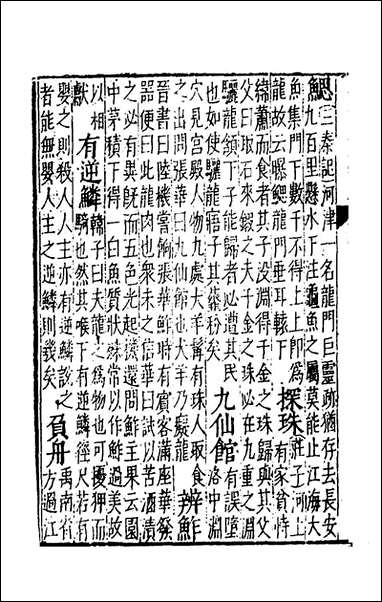 鰓
三秦記河津一名龍門巨靈跡猶存去長安
九百里懸水下注龜魚之屬莫能止江海大
魚集門下數千不得上上即為
龍故云曝鰓龍門垂耳轅下
探珠
莊子河上
有家貧恃
緯蕭而食者其子沒淵得千金之珠歸與其父
父曰取石來鍜之夫千金之珠必在九重之淵
驪龍頷下子能歸者必遭其
也如使驪龍寤子其虀粉矣
九仙館
有誤墮
洛中淵
穴見宮殿人物九處大羊髯有珠人取食
之出問張華曰九仙館也大羊乃癡龍
辨鮓
晉書曰陸機嘗餉張華鮓時有賓客滿座華發
器便曰此龍肉也衆未之信華曰試以苦酒漬
之必有異既而五色光起機還問鮓主果云園
中茅積下得一白魚質狀殊常以作鮓過美故
以相
獻
有逆鱗
韓子曰夫龍之為物也可擾狎而
騎也然其喉下有逆鱗徑尺若有
嬰之則殺人人主亦有逆鱗說之
者能無嬰人主之逆鱗則幾矣
負舟
禹南省
方過江